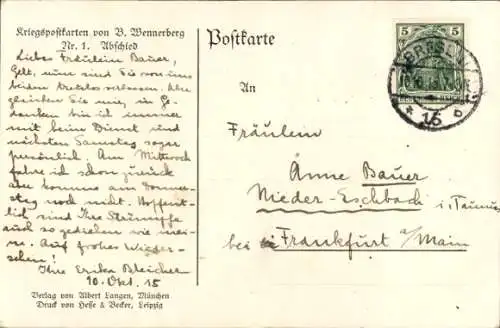 Kriegspostkarten von B. Wennerberg
Nr. 1. Abschied
Liebes Fräulein Bauer,
Gelt, nun sind Sie von uns
beiden treulos verlassen. Aber
gleichen Sie nur, in Ge-
danken bin ich immer
mit beim Dienst und
nächsten Samstag sogar
persönlich. Am Mittwoch
fahre ich schon zurück
komme am Donners-
tag noch nicht. Hoffent-
lich sind Ihre Strümpfe
auch so gediehen wie mei-
ne. Auf frohes Wieder-
sehen!
Ihre Erika Bleicher
10. Okt. 15
Verlag von Albert Langen, München
Druck von Hesse & Becker, Leipzig
Postkarte
An
Fräulein
Anne Bauer
Nieder-Eschbach i. Taunus
bei Frankfurt a/Main
5 5
DEUTSCHES REICH
DRESDEN
15
* 16 b